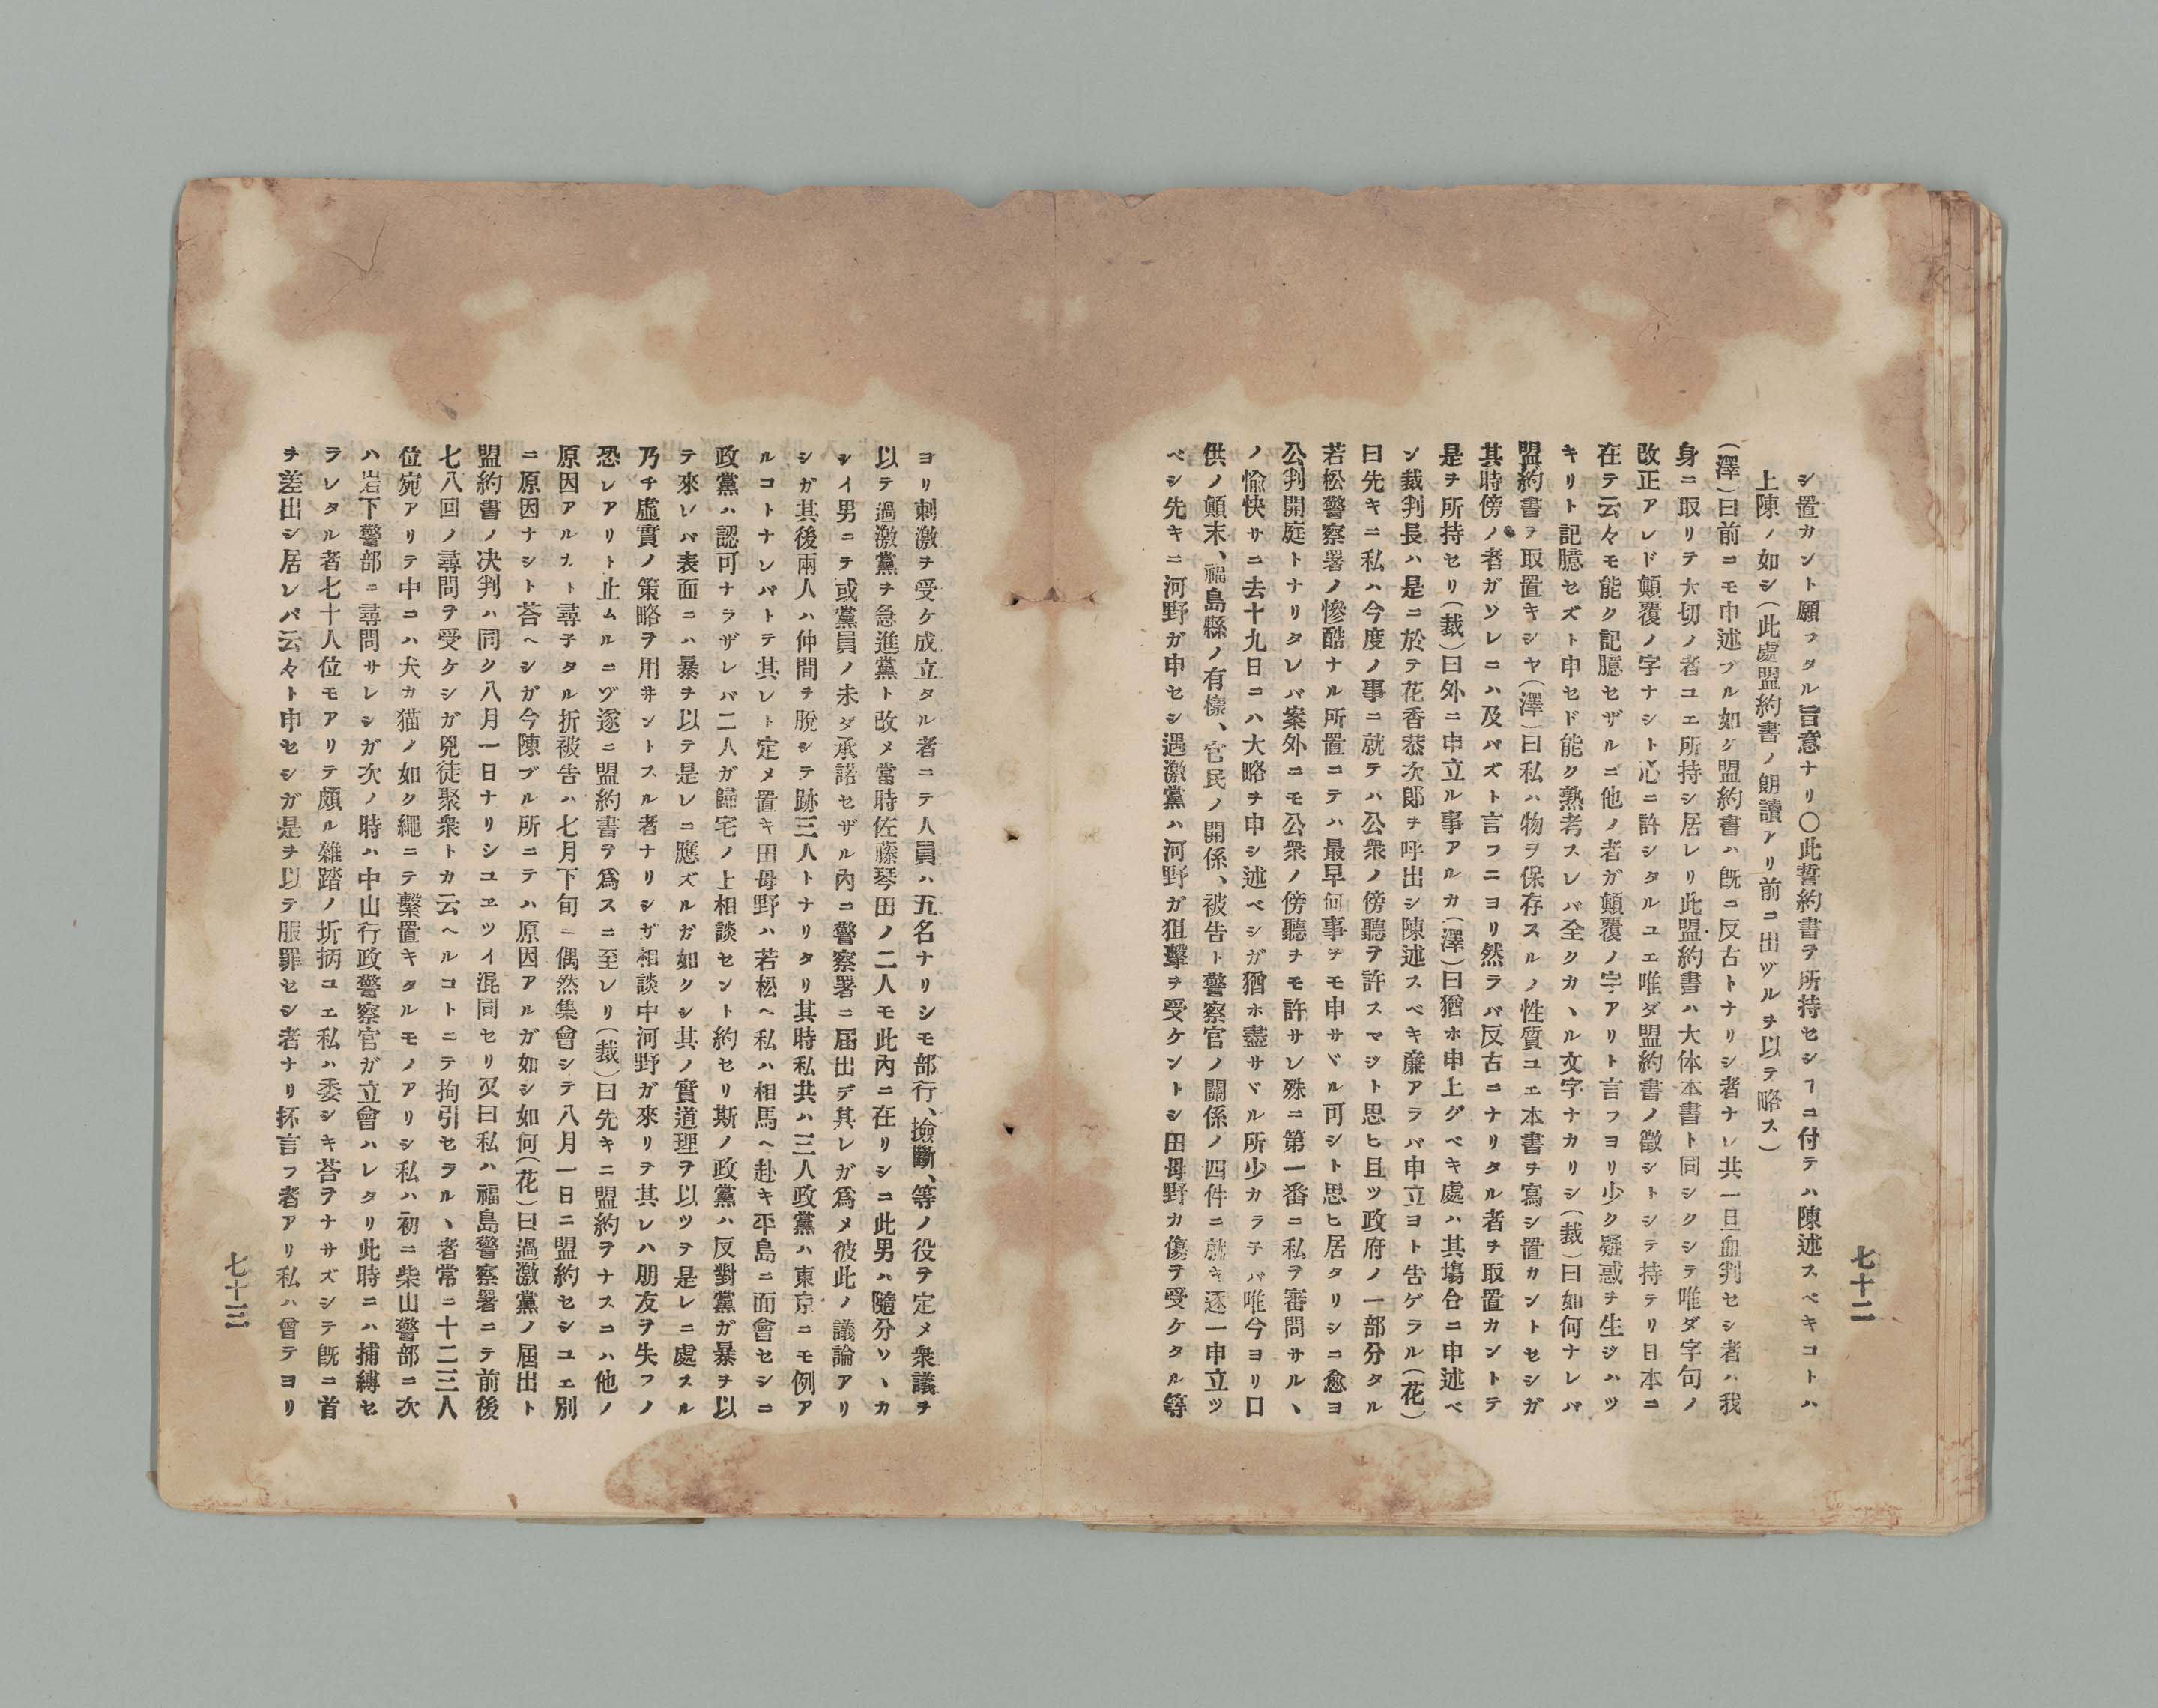 七十二
シ置カント願フタル旨意ナリ〇此誓約書ヲ所持セシヿニ付テハ陳述スベキコトハ
上陳ノ如シ(此處盟約書ノ朗讀アリ前ニ出ヅルヲ以テ略ス)
(澤)曰前ニモ申述ブル如ク盟約書ハ旣ニ反古トナリシ者ナレ共一旦血判セシ者ハ我
身ニ取リテ大切ノ者ユエ所持シ居レリ此盟約書ハ大体本書ト同シクシテ唯ダ字句ノ
改正アレド顚覆ノ字ナシト心ニ許シタルユエ唯ダ盟約書ノ徵シトシテ持テリ日本ニ
在テ云々モ能ク記臆セザルニ他ノ者ガ顚覆ノ字アリト言フヨリ少ク疑惑ヲ生ジハツ
キリト記臆セズト申セド能ク熟考スレバ全クカヽル文字ナカリシ(裁)曰如何ナレバ
盟約書ヲ取置キシヤ(澤)曰私ハ物ヲ保存スルノ性質ユエ本書ヲ寫シ置カントセシガ
其時傍ノ者ガソレニハ及バズト言フニヨリ然ラバ反古ニナリタル者ヲ取置カントテ
是ヲ所持セリ(裁)曰外ニ申立ル事アルカ(澤)曰猶ホ申上グベキ處ハ其塲合ニ申述ベ
ン裁判長ハ是ニ於テ花香恭次郞ヲ呼出シ陳述スベキ廉アラバ申立ヨト告ゲラル(花)
曰先キニ私ハ今度ノ事ニ就テハ公衆ノ傍聽ヲ許スマジト思ヒ且ツ政府ノ一部分タル
若松警察署ノ慘酷ナル所置ニテハ最早何事ヲモ申サヾル可シト思ヒ居タリシニ愈ヨ
公判開庭トナリタレバ案外ニモ公衆ノ傍聽ヲモ許サレ殊ニ第一番ニ私ヲ審問サルヽ
ノ愉快サニ去十九日ニハ大略ヲ申シ述ベシガ猶ホ盡サヾル所少カラ子バ唯今ヨリ口
供ノ顚末、福島縣ノ有樣、官民ノ開係、被告ト警察官ノ關係ノ四件ニ就キ逐一申立ツ
ベシ先キニ河野ガ申セシ過激黨ハ河野ガ狙擊ヲ受ケントシ田母野カ傷ヲ受ケタル等
ヨリ刺激ヲ受ケ成立タル者ニテ人員ハ五名ナリシモ部行、撿斷、等ノ役ヲ定メ衆議ヲ
以テ過激黨ヲ急進黨ト改メ當時佐藤琴田ノ二人モ此內ニ在リシニ此男ハ隨分ソヽカ
シイ男ニテ或黨員ノ未ダ承諾セザル內ニ警察署ニ届出デ其レガ爲メ彼此ノ議論アリ
シガ其後兩人ハ仲間ヲ脫シテ跡三人トナリタリ其時私共ハ三人政黨ハ東京ニモ例ア
ルコトナレバトテ其レト定メ置キ田母野ハ若松ヘ私ハ相馬ヘ赴キ平島ニ面會セシニ
政黨ハ認可ナラザレバ二人ガ歸宅ノ上相談セント約セリ斯ノ政黨ハ反對黨ガ暴ヲ以
テ來レバ表面ニハ暴ヲ以テ是レニ應ズルガ如クシ其ノ實道理ヲ以ツテ是レニ處スル
乃チ虛實ノ策略ヲ用井ントスル者ナリシガ相談中河野ガ來リテ其レハ朋友ヲ失フノ
恐レアリト止ムルニヅ遂ニ盟約書ヲ爲スニ至レリ(裁)曰先キニ盟約ヲナスニハ他ノ
原因アルカト尋子タル折被告ハ七月下旬ニ偶然集會シテ八月一日ニ盟約セシユエ別
ニ原因ナシト荅ヘシガ今陳ブル所ニテハ原因アルガ如シ如何(花)曰過激黨ノ屆出ト
盟約書ノ决判ハ同ク八月一日ナリシユヱツイ混同セリ又曰私ハ福島警察署ニテ前後
七八回ノ尋問ヲ受ケシガ兇徒聚衆トカ云ヘルコトニテ拘引セラルヽ者常ニ十二三人
位宛アリテ中ニハ犬カ猫ノ如ク繩ニテ繫置キタルモノアリシ私ハ初ニ柴山警部ニ次
ハ岩下警部ニ尋問サレシガ次ノ時ハ中山行政警察官ガ立會ハレタリ此時ニハ捕縛セ
ラレタル者七十人位モアリテ頗ル雜踏ノ折柄ユエ私ハ委シキ荅ヲナサズシテ旣ニ首
ヲ差出シ居レバ云々ト申セシガ是ヲ以テ服罪セシ者ナリ抔言フ者アリ私ハ曾テヨリ
七十三